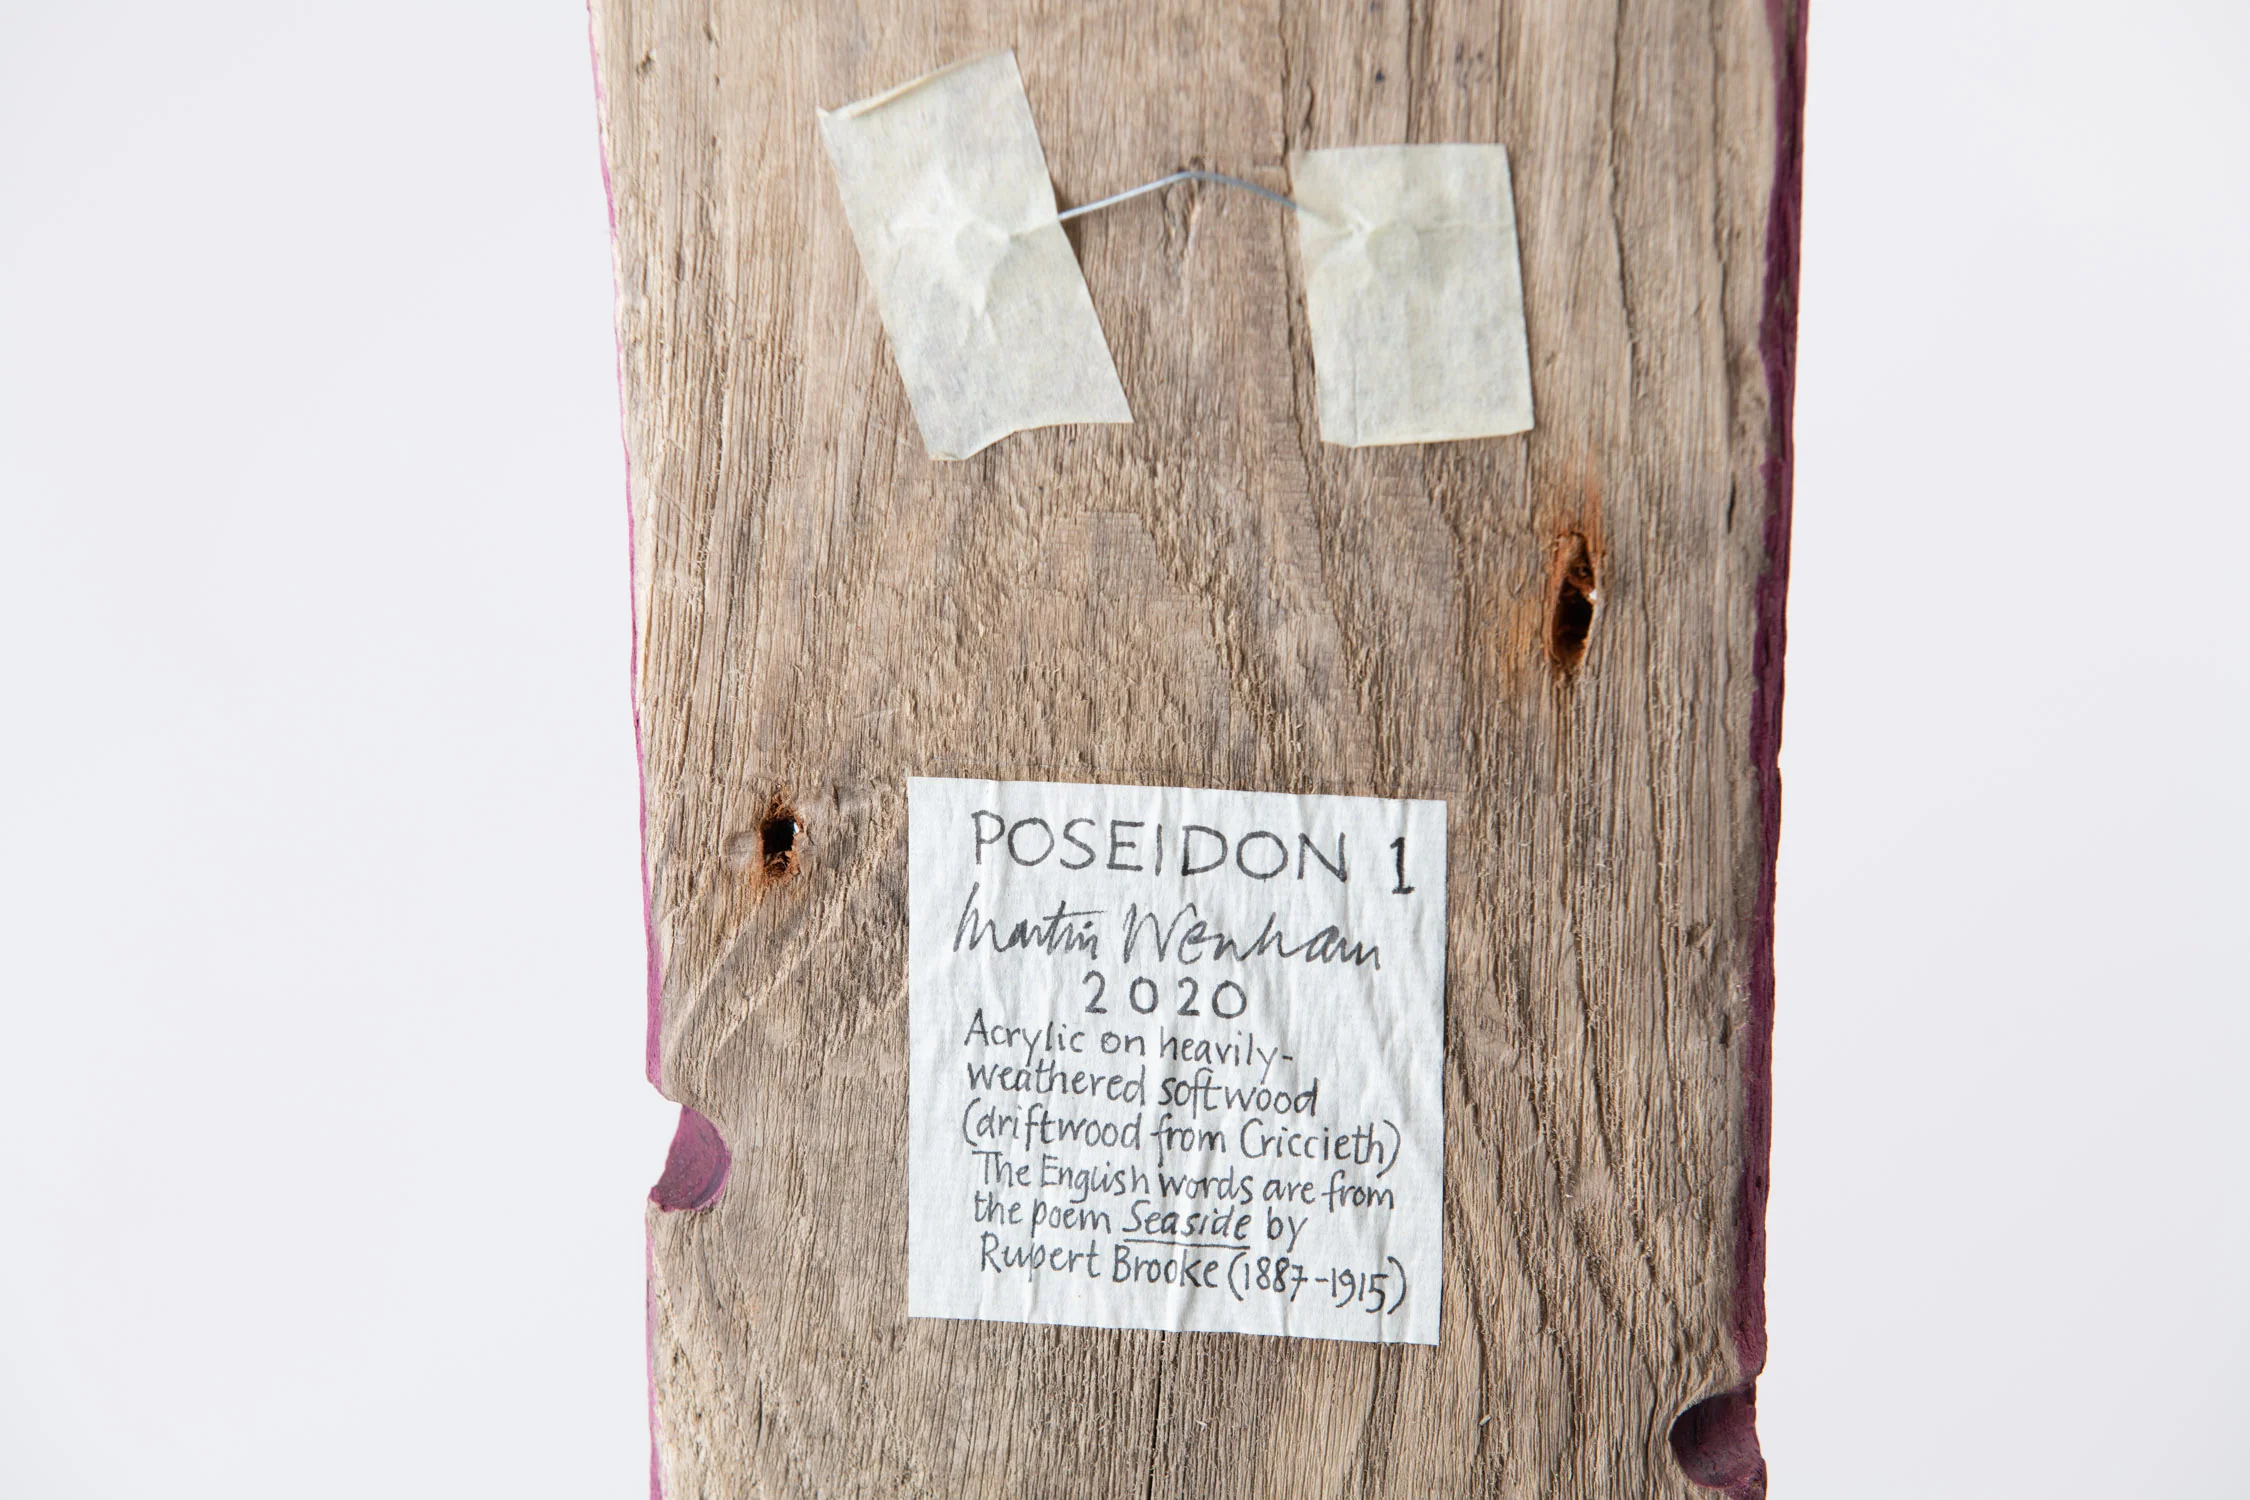 POSEIDON 1
Martin Wenham
2020
Acrylic on heavily-
weathered softwood
(driftwood from Criccieth)
The English words are from
the poem Seaside by
Rupert Brooke (1887-1915)